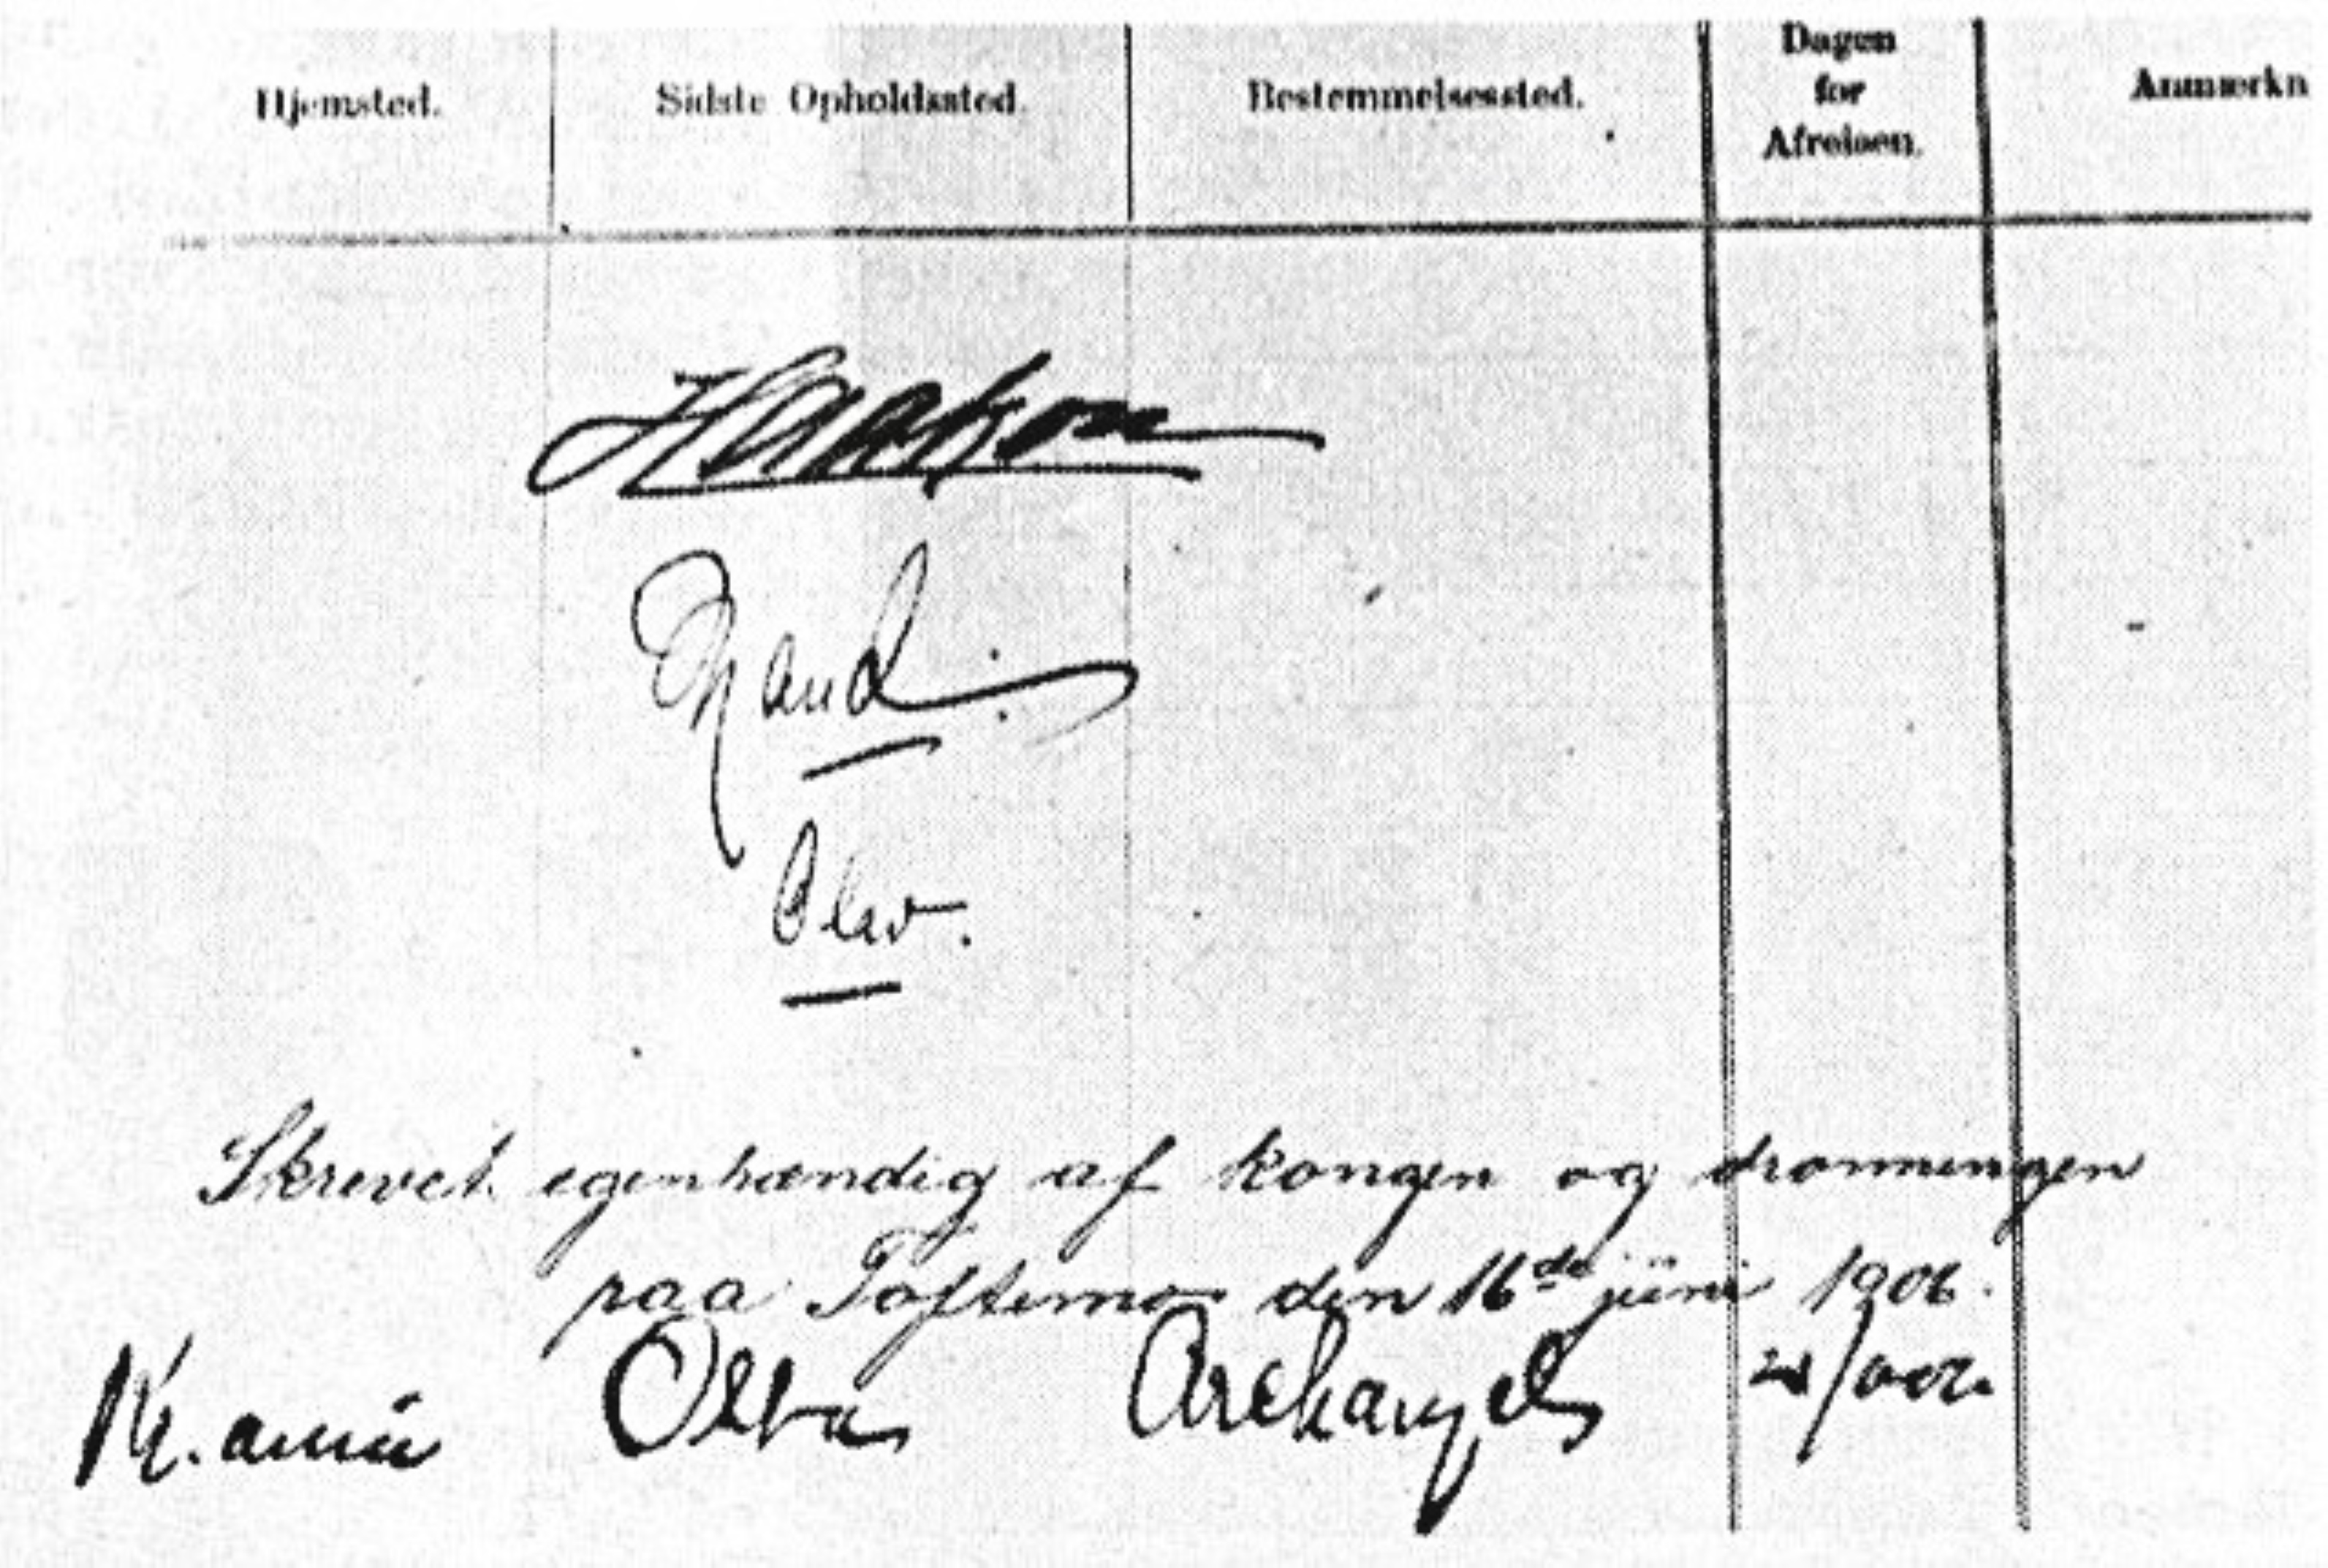 Hjemsted. Sidste Opholdssted. Bestemmelsessted. Dagen for Afreisen. Anmærkn
Haakon
Maud.
Olav.
Skrevet egenhændig af kongen og dronningen
paa Toftemo den 16de juni 1906.
Archangels